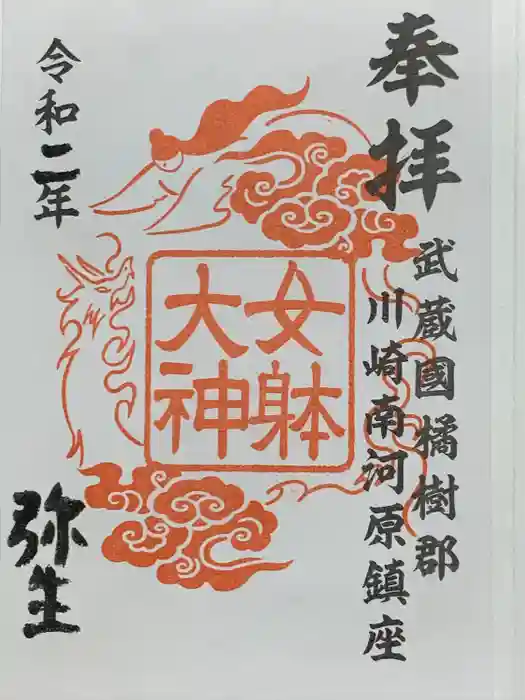 奉拝
武蔵國橘樹郡
川崎南河原鎮座
女躰
大神
令和二年
弥生